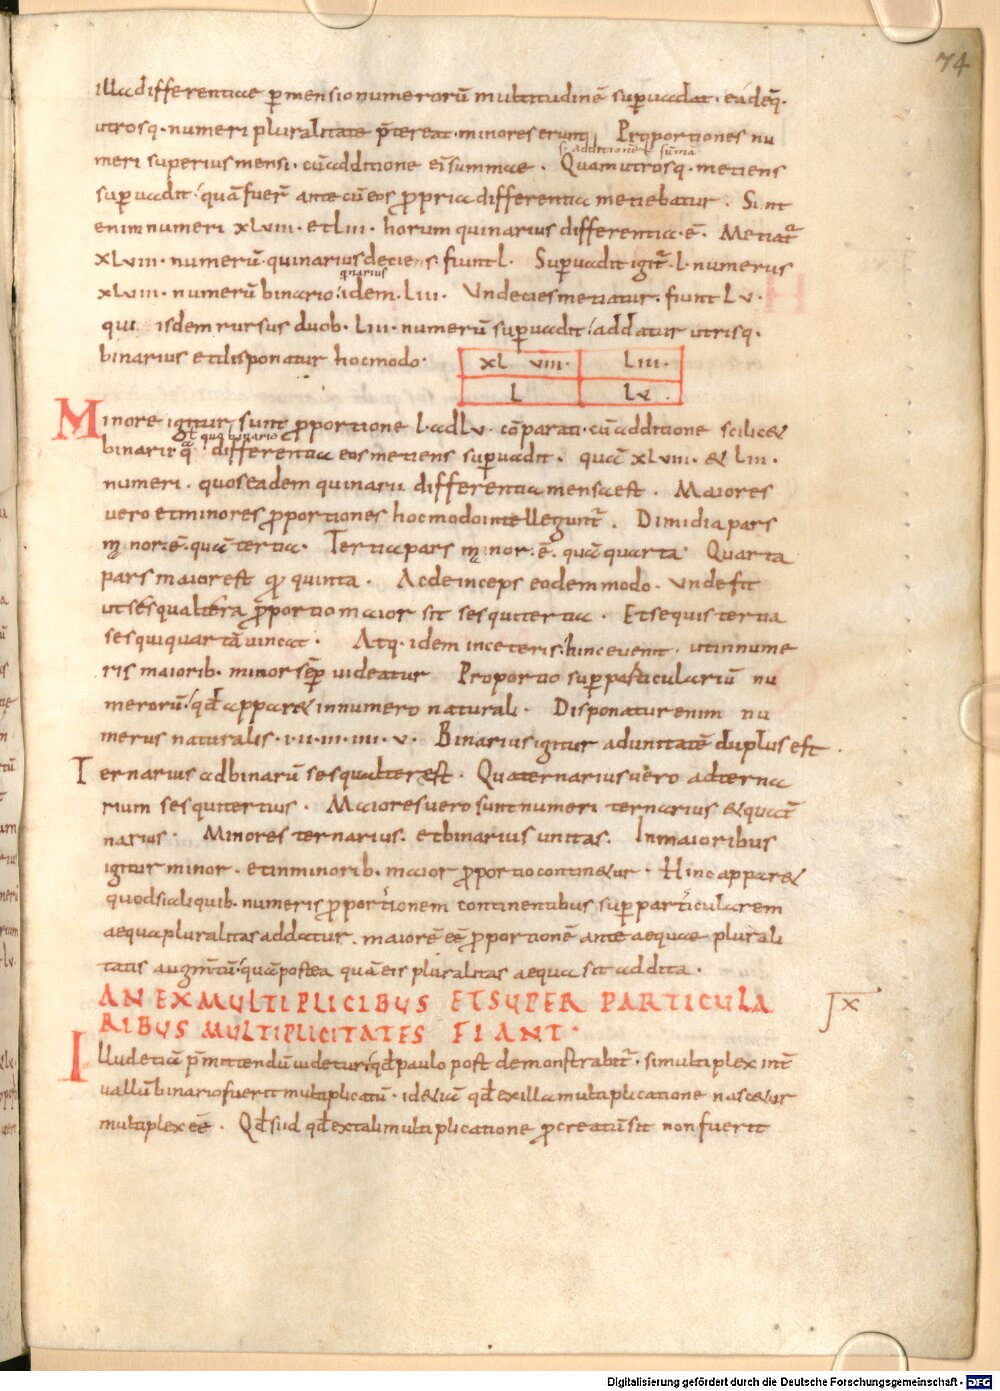 74
illa differentiae p̱ mensio numerorū multitudinē sup̱uadat · eadēq̄·
utrosq· numeri pluralitate p̄tereat · minores erunt Proportiones nu
s· additione summa
meri superius mensi · cū additione eis summae . Quam utrosq· metiens
sup̱uadit / quā fuer̄ ante cū eos p̱pria differentia metiebatur . Sint
enim numeri XLVIII · et LIII · horum quinarius differentia · ē · Metiat̄
XLVIII · numerū · quinarius deciens fiunt L · Sup̱uadit igit̄ · L · numerus
qnarius
XLVIII · numerū binario / idem · LIII · Undecies metiatur · fiunt LV ·
qui isdem rursus duob· LIII · numerū sup̱uadit / addatur utrisq·
binarius et disponatur hoc modo ·
XL VIII · LIII ·
L LV .
Minore igitur sunt p̱portione L · ad LV · cōparati · cū additione scilic&
qua binario
binarii q̄ differentia eos metiens sup̱uadit · quā XLVIII · & LIII ·
numeri · quos eadem quinarii differentia mensa est . Maiores
uero et minores p̱portiones hoc modo intellegunt̄ . Dimidia pars
minor · ē · quā tertia · Tertia pars minor · ē · quā quarta · Quarta
pars maior est quinta · Ac deinceps eodem modo · unde fit
ut sesqualtera p̱portio maior sit sesquitertia · Et sequis tertia
sesquiquartā uincat · Atq· idem in ceteris · hinc euenit · ut in nume
ris maiorib· minor semp̱ uideatur Proportio sup̱particulariū nu
merorū / qđ appar& in numero naturali · Disponatur enim nu
merus naturalis · I · II · III · IIII · V · Binarius igitur ad unitatē duplus est .
Ternarius ad binarū sesqualter est · Quaternarius uero ad terna
rium sesquitertius · Maiores uero sunt numeri ternarius & quat̄
narius · Minores ternarius · et binarius unitas · In maioribus
igitur minor · et in minorib· maior p̱portio contin&ur · Hinc appar&
quod si aliquib· numeris p̱portionem continentibus sup̱particularem
aequa pluralitas addatur · maiorē eē p̱portionē ante aequae plurali
tatis augm̄tū / quā postea quā eis pluralitas aequa sit addita ·
AN EX MULTIPLICIBUS ET SUPER PARTICULA
RIBUS MULTIPLICITATES FIANT ·
X
Illud etiā p̄mittendū uidetur / qđ paulo post demonstrabit̄ · si multiplex int̄
uallū binario fuerit multiplicatū · id &iā qđ ex illa multiplicatione nasc&ur
multiplex eē · Qđ si id qđ ex tali multiplicatione p̱creatū sit non fuerit
Digitalisierung gefördert durch die Deutsche Forschungsgemeinschaft - DFG